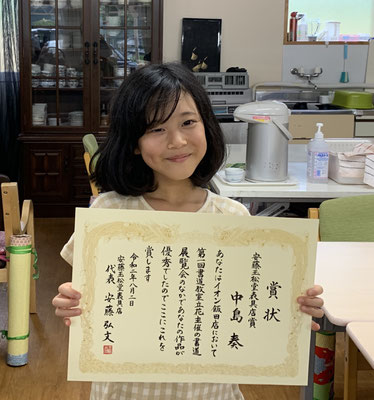 賞状
安藤玉松堂表具店賞
中島 奏
あなたはイオン飯田店において
第一回書道教室立花主催の書道
展覧会のなかであなたの作品が
優秀でしたのでここにこれを
賞します
令和二年八月二日
安藤玉松堂表具店
代表 安藤弘文